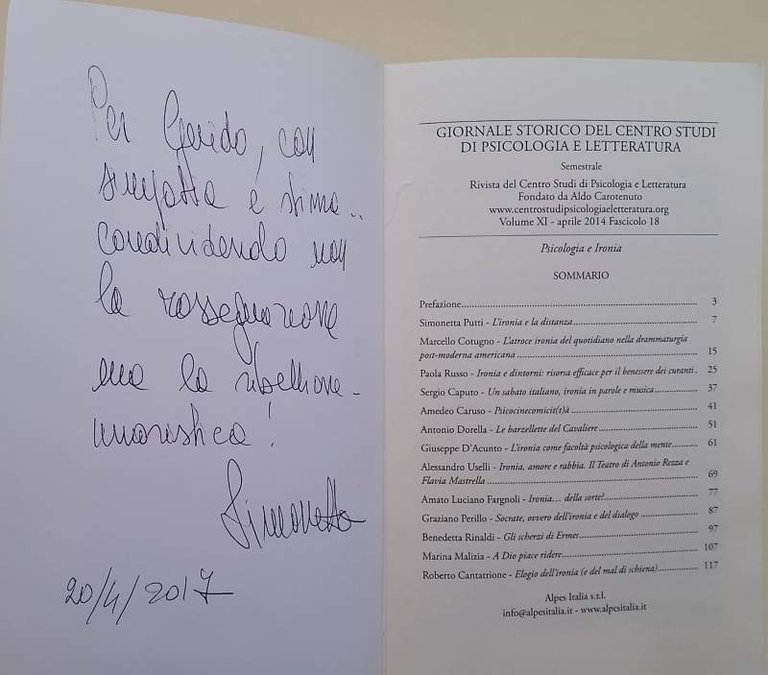 Per Guido, con
simpatia e stima..
condividendo non
la rassegnazione
ma la ribellione
umoristica!
Simonetta
20/4/2017
GIORNALE STORICO DEL CENTRO STUDI
DI PSICOLOGIA E LETTERATURA
Semestrale
Rivista del Centro Studi di Psicologia e Letteratura
Fondato da Aldo Carotenuto
www.centrostudipsicologiaeletteratura.org
Volume XI - aprile 2014 Fascicolo 18
Psicologia e Ironia
SOMMARIO
Prefazione 3
Simonetta Putti - L'ironia e la distanza 7
Marcello Cotugno - L'atroce ironia del quotidiano nella drammaturgia
post-moderna americana 15
Paola Russo - Ironia e dintorni: risorsa efficace per il benessere dei curanti. 25
Sergio Caputo - Un sabato italiano, ironia in parole e musica 37
Amedeo Caruso - Psicocinecomicit(t)à 41
Antonio Dorella - Le barzellette del Cavaliere 51
Giuseppe D'Acunto - L'ironia come facoltà psicologica della mente 61
Alessandro Uselli - Ironia, amore e rabbia. Il Teatro di Antonio Rezza e
Flavia Mastrella 69
Amato Luciano Fargnoli - Ironia… della sorte? 77
Graziano Perillo - Socrate, ovvero dell'ironia e del dialogo 87
Benedetta Rinaldi - Gli scherzi di Ermes 97
Marina Malizia - A Dio piace ridere 107
Roberto Cantatrione - Elogio dell'ironia (e del mal di schiena) 117
Alpes Italia s.r.l.
info@alpesitalia.it - www.alpesitalia.it